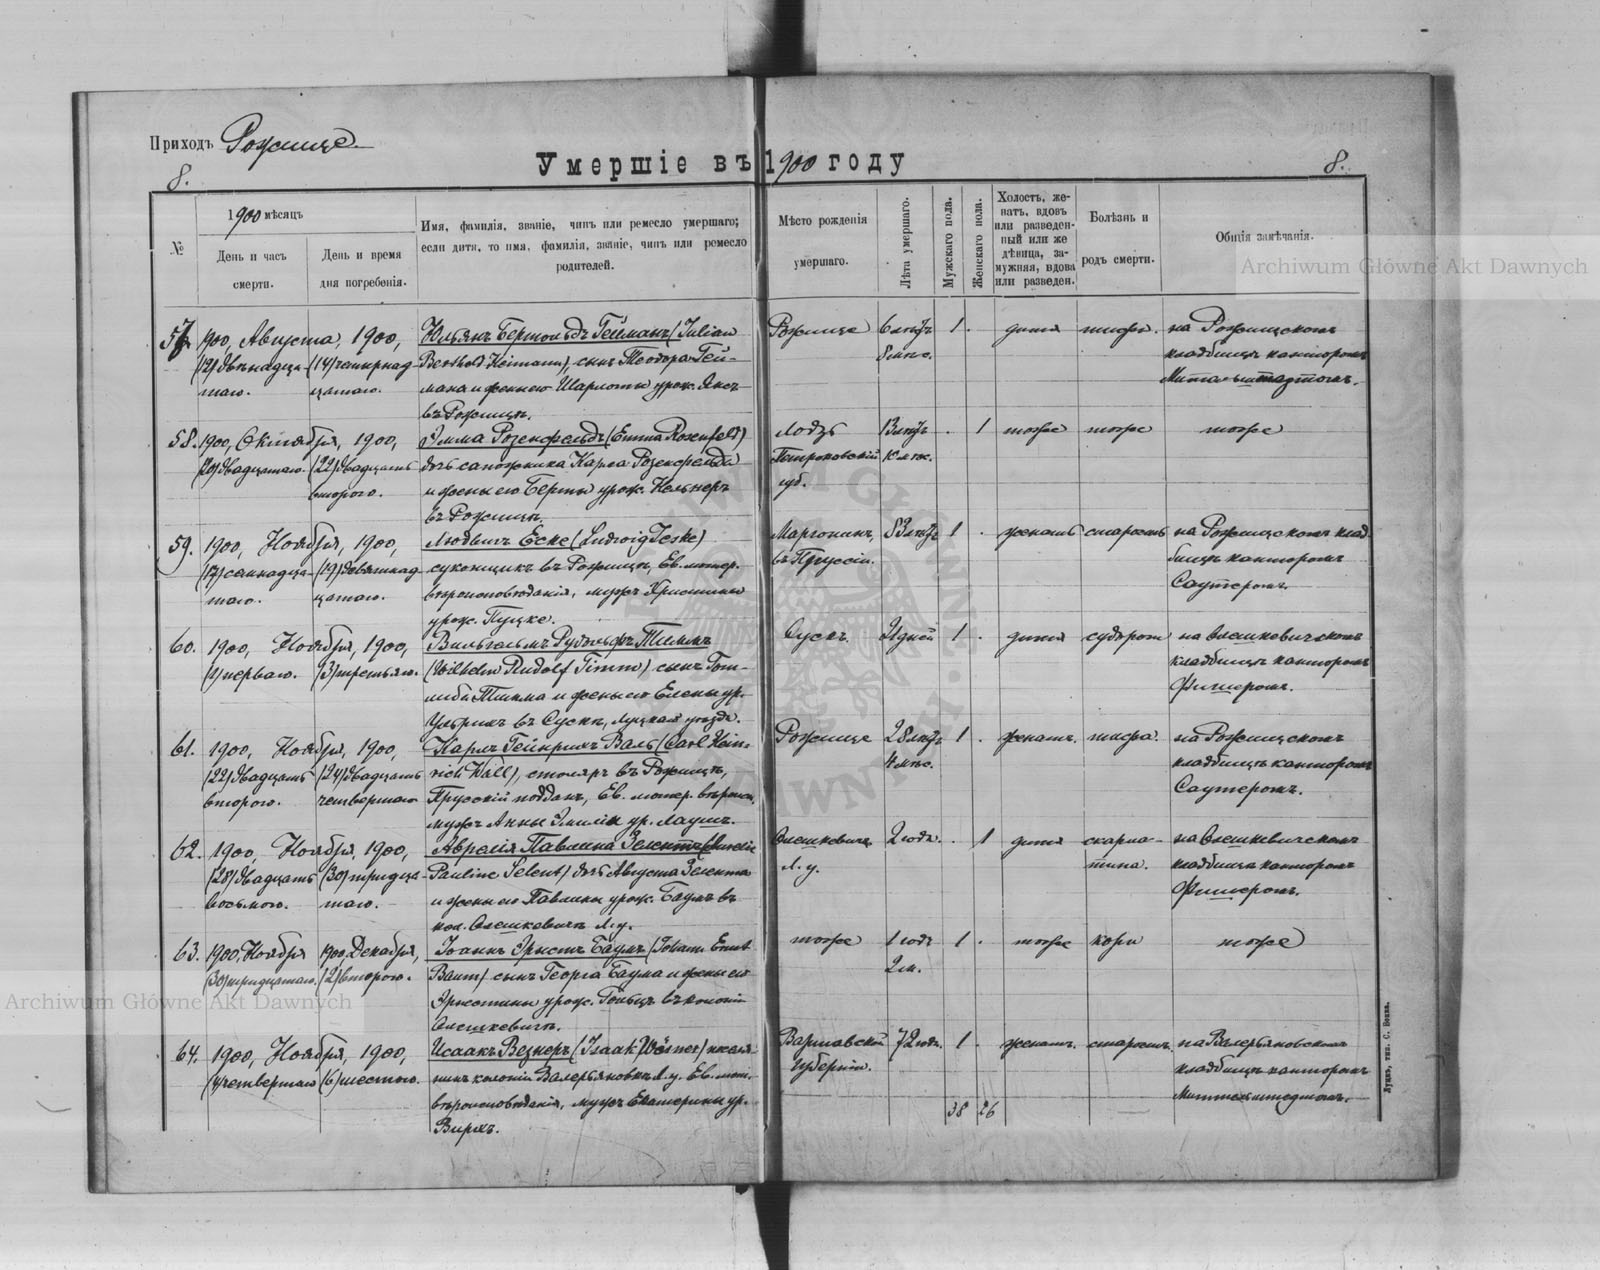 Приходъ Рожище
Умершіе въ 1900 году
8.
8.
№
1900 мѣсяцъ
День и часъ смерти.
День и время дня погребенія.
Имя, фамилія, званіе, чинъ или ремесло умершаго;
если дитя, то имя, фамилія, званіе, чинъ или ремесло
родителей.
Мѣсто рожденія
умершаго.
Лѣта умершаго.
Мужскаго пола.
Женскаго пола.
Холостъ, же-
натъ, вдовъ
или разведен-
ный или же
дѣвица, за-
мужняя, вдова
или разведен.
Болѣзнь и
родъ смерти.
Общія замѣчанія.
57. 1900, Августа, 1900,
(12) двѣнадца-
таго.
(14) четырнад-
цатаго.
Юльянъ Бертольдъ Гейманъ (Julian
Berthold Heimann), сынъ Теодора Гей-
мана и
Шарлоты урож.
въ Рожищѣ.
Рожище
6 лѣтъ
8 мѣс.
1
.
дитя
тифъ.
на Рожищскомъ
кладбищѣ канторомъ
Миттельштедтомъ.
58. 1900, Октября, 1900,
(20) двадцатаго.
(22) двадцать
второго.
Эмма Розенфельдъ (Emma Rosenfeld)
дочь сапожника Карла Розенфельда
и жены его Берты урож. Кельнеръ
въ Рожищѣ.
Лодзь
Петроковской
губ.
13 лѣтъ
10 мѣс.
.
1
тоже
тоже
тоже
59. 1900, Ноября, 1900,
(17) семнадца-
таго.
(19) девятнад-
цатаго.
Людвигъ Еске (Ludwig Jeske)
суконщикъ въ Рожищѣ, Ев. лютер.
вѣроисповѣданія, мужъ Христины
урож. Пуцке.
Маргонинъ,
въ Пруссіи.
83 лѣтъ
1
.
женатъ
старость
на Рожищскомъ клад-
бищѣ канторомъ
Саутеромъ.
60. 1900, Ноября, 1900,
(1) перваго.
(3) третьяго.
Вильгельмъ Рудольфъ Тиммъ
(Wilhelm Rudolf Timm) сынъ Гот-
либа Тимма и жены его Елены ур.
Ульрихъ въ Сускѣ, Луцкаго уѣзда.
Сускъ.
21 дней
1
.
дитя
судороги
на Олешкевичскомъ
кладбищѣ канторомъ
Фишеромъ.
61. 1900, Ноября, 1900,
(22) двадцать
второго.
(24) двадцать
четвертаго
Карлъ Гейнрихъ Валь (Carl Hein-
rich Wall), столяръ въ Рожищѣ,
Прусскій поддан., Ев. лютер. вѣроисп.,
мужъ Анны Эмиліи ур. Лаушъ.
Рожище
28 лѣтъ
4 мѣс.
1
.
женатъ.
тифъ.
на Рожищскомъ
кладбищѣ канторомъ
Саутеромъ.
62. 1900, Ноября, 1900,
(28) двадцать
восьмого.
(30) тридца-
таго.
Аврелія Павлина Зелентъ (Aurelie
Pauline Selent) дочь Августа Зелента
и жены его Павлины урож. Баумъ въ
кол. Олешкевичъ Л.у.
Олешкевичъ
Л. у.
2 года.
.
1
дитя
скарла-
тина.
на Олешкевичскомъ
кладбищѣ канторомъ
Фишеромъ.
63. 1900, Ноября
1900 Декабря,
(30) тридцатаго.
(2) второго.
Іоаннъ Эрнстъ Баумъ (Johann Ernst
Baum) сынъ Георга Баума и жены его
Эрнстины урож. Гольцъ въ колоніи
Олешкевичъ.
тоже
1 годъ
2 м.
1
.
тоже
кори
тоже
64. 1900, Ноября, 1900,
(4) четвертаго
(6) шестого.
Исаакъ Везнеръ (Isaak Wösner) поселя-
нинъ колоніи Валерьяновкѣ Л.у. Ев. лют.
вѣроисповѣданія, мужъ Екатерины ур.
Вирхъ.
Варшавской
губерніи.
72 года.
1
.
женатъ.
старость.
на Валерьяновскомъ
кладбищѣ канторомъ
Миттельштедтомъ.
38
26
Луцкъ, тип. С. Бенха.
Archiwum Główne Akt Dawnych
Archiwum Główne Akt Dawnych